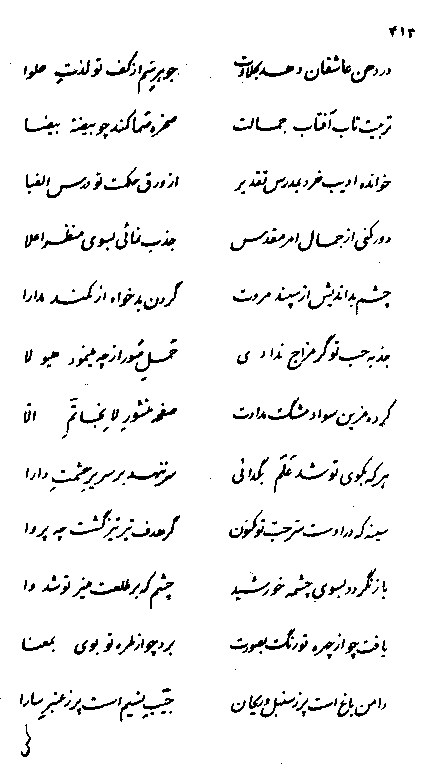 ۴۱۳
در دهن عاشقان دهد بحلاوت جوهر سم از کف تو لذت حلوا
تربیت تاب آفتاب جمالت صخره صما کند چو بیضه بیضا
خوانده ادیب خرد بمدرس تقدیر از ورق حکمت تو درس الفبا
دور کنی از جمال امر مقدس جذب نمائی بسوی منظر اعلا
چشم بداندیش از سپند مروت گردن بدخواه از کمند مدارا
جذبه حب تو گر مزاج ندادی حمل صور از چه مینمود هیولا
کرده مزین سواد مشک مدادت صفحه منشور لا بخاتم الا
هر که بکوی تو شد علم بگدائی سر ننهد بر سریر حشمت دارا
سینه که در اوست سر حب تو مکنون گر هدف تیر تیز گشت چه پروا
باز نگردد بسوی چشمه خورشید چشم که بر طلعت منیر تو شد وا
یافت چو از چهره تو رنگ بصورت برد چو از طره تو بوی بمعنا
دامن باغ است پر ز سنبل و ریحان جیب نسیم است پر ز عنبر سارا